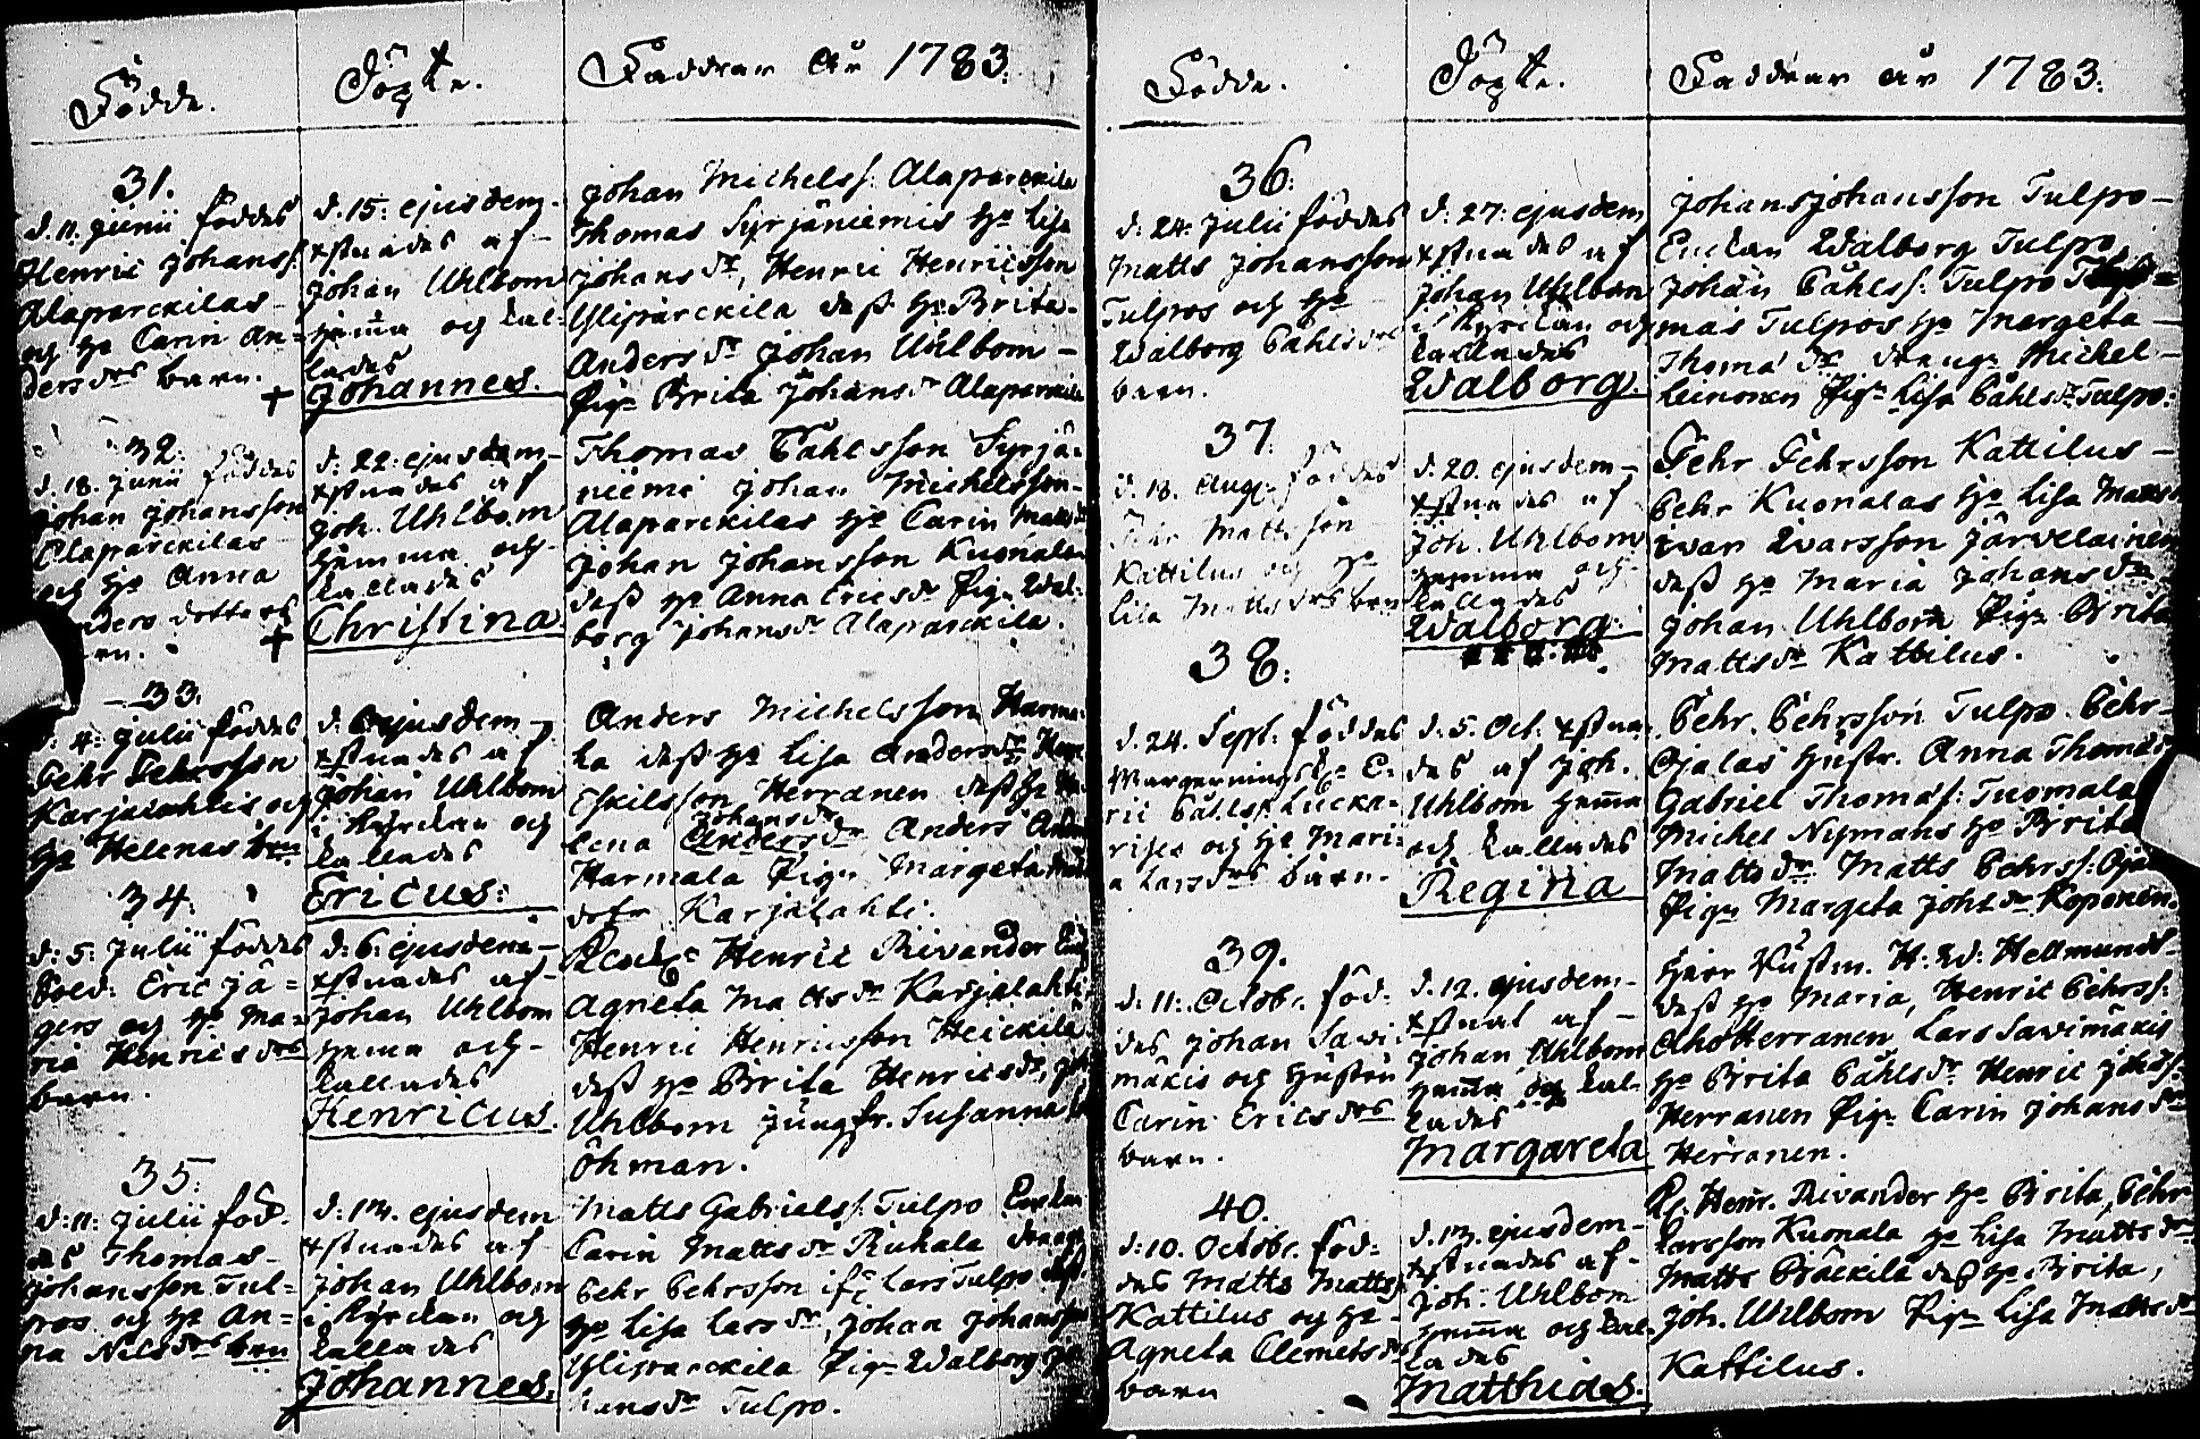 Födde.
Döpte.
Faddrar År 1783.
31.
d. 11. Junii föddes
Henric Johanss:
Alaparckilas
och H:o Carin An=
dersdrs barn. +
d. 15: ejusdem
xstnades af
Johan Uhlbom
hema och kal=
lades
Johannes.
Johan Michelss: Alaparckila
Thomas Syrjäniemis H:o Lisa
Johansdr, Henric Henricsson
Yliparckila dess H:o Brita
Andersdr Johan Uhlbom
Pig. Brita Johansdr Alaparckila
32.
d. 18. Junii föddes
Johan Johansson
Alaparckilas
och H:o Anna
dotters
+
d: 22: ejusdem
xstnades af
Joh. Uhlbom
hemma och
kallades
Christina
Thomas Påhlsson Syrjä=
niemi Johan Michelsson
Alaparckilas H:o Carin Mattsdr
Johan Johansson Kuonala
dess H:o Anna Ericsdr Pig. Wal=
borg Johansdr Alaparckila.
33.
d: 4: Julii föddes
Pehr Pehrsson
Karjalahtis och
H:o Helenas brn
d. 6 ejusdem
xstnades af
Johan Uhlbom
i Kyrckan och
kallades
Ericus:
Anders Michelsson Harma=
la dess H:o Lisa Andersdr
Eskilsson Herranen dess H:o He=
lena Johansdr Andersdr Anders
Harmala Pig. Margeta
dotr Karjalahti.
34.
d: 5: Julii föddes
Sold: Eric Jä=
gers och H:o Ma=
ria Henricsdrs
barn.
d: 6: ejusdem
xstnades af
Johan Uhlbom
hema och
kallades
Henricus.
Henric Rivander
Agneta Mattsdr Karjalahti
Henric Henricsson Heickila
dess H:o Brita Henricsdr, Joh
Uhlbom Jungfr. Susanna
Öhman.
35:
d: 11: Julii föd=
des Thomas
Johansson Tul=
pos och H:o An=
na Nilsdrs brn
d: 13. ejusdem
xstnades af
Johan Uhlbom
i Kyrckan och
kallades
Johannes.
Matts Gabrielss: Tulpo Enckan
Carin Mattsdr Rukala dräng
Pehr Pehrsson Lars Tulpo
H:o Lisa Larsdr, Johan Johansson
Yliparckila Pig. Walborg Jo
hansdr Tulpo.
Födde.
Döpte.
Faddrar år 1783.
36.
d: 24: Julii föddes
Matts Johansson
Tulpos och H:o
Walborg Påhlsdrs
barn.
d: 27: ejusdem
xstnades af
Johan Uhlbom
i Kyrckan och
kallades
Walborg.
Johan Johansson Tulpo
Enckan Walborg Tulpo,
Johan Påhlss: Tulpo Tho=
mas Tulpos H:o Margeta
Thomadr dräng. Michel
Leinonen Pig. Lisa Påhlsdr Tulpo:
37.
d. 18. Aug. föddes
Pehr Mattsson
Kattilus och H:o
Lisa Mattsdrs brn
d. 20. ejusdem
xstnades af
Joh. Uhlbom
hemma och
kallades
Walborg.
Pehr Pehrsson Kattilus
Pehr Kuonalas H:o Lisa Mattsdr
Iwar Iwarsson Järveläinen
dess H:o Maria Johansdr
Johan Uhlbom Pig. Brita
Mattsdr Kattilus.
38.
d. 24. Sept. föddes
E=
ric Påhlss: Lucka=
rises och H:o Mari=
a Larsdrs barn.
d. 5. Oct. xstna=
des af Joh.
Uhlbom hema
och kallades
Regina
Pehr Pehrsson Tulpo. Pehr
Ojalas Hustr. Anna Thomasdr
Gabriel Thomas: Tuomala
Michel Nymans H:o Brita
Mattsdr Matts Pehrss: Ojala
Pig. Margeta Johsdr Koponen.
39.
d. 11: Octobr. föd=
des Johan Sawi=
mäkis och Hustru
Carin Ericsdrs
barn.
d. 12. ejusdem
xstnat af
Johan Uhlbom
hema och kal=
lades
Margareta
Herr H: W: Hellmundt
dess H:o Maria, Henric Pehrss:
Aho Herranen Lars Sawimäkis
H:o Brita Påhlsdr Henric Johass:
Herranen Pig. Carin Johansdr
Herranen.
40.
d: 10. Octobr. föd=
des Matts Mattss:
Kattilus och H:o
Agneta Clemetsdrs
barn
d. 13. ejusdem
xstnades af
Joh: Uhlbom
hema och kal=
lades
Matthias.
Henr. Rivander H:o Brita, Pehr
Larsson Kuonala H:o Lisa Mattsdr
Matts Pråckilä dess H:o Brita,
Joh. Uhlbom Pig. Lisa Mattsdr
Kattilus.